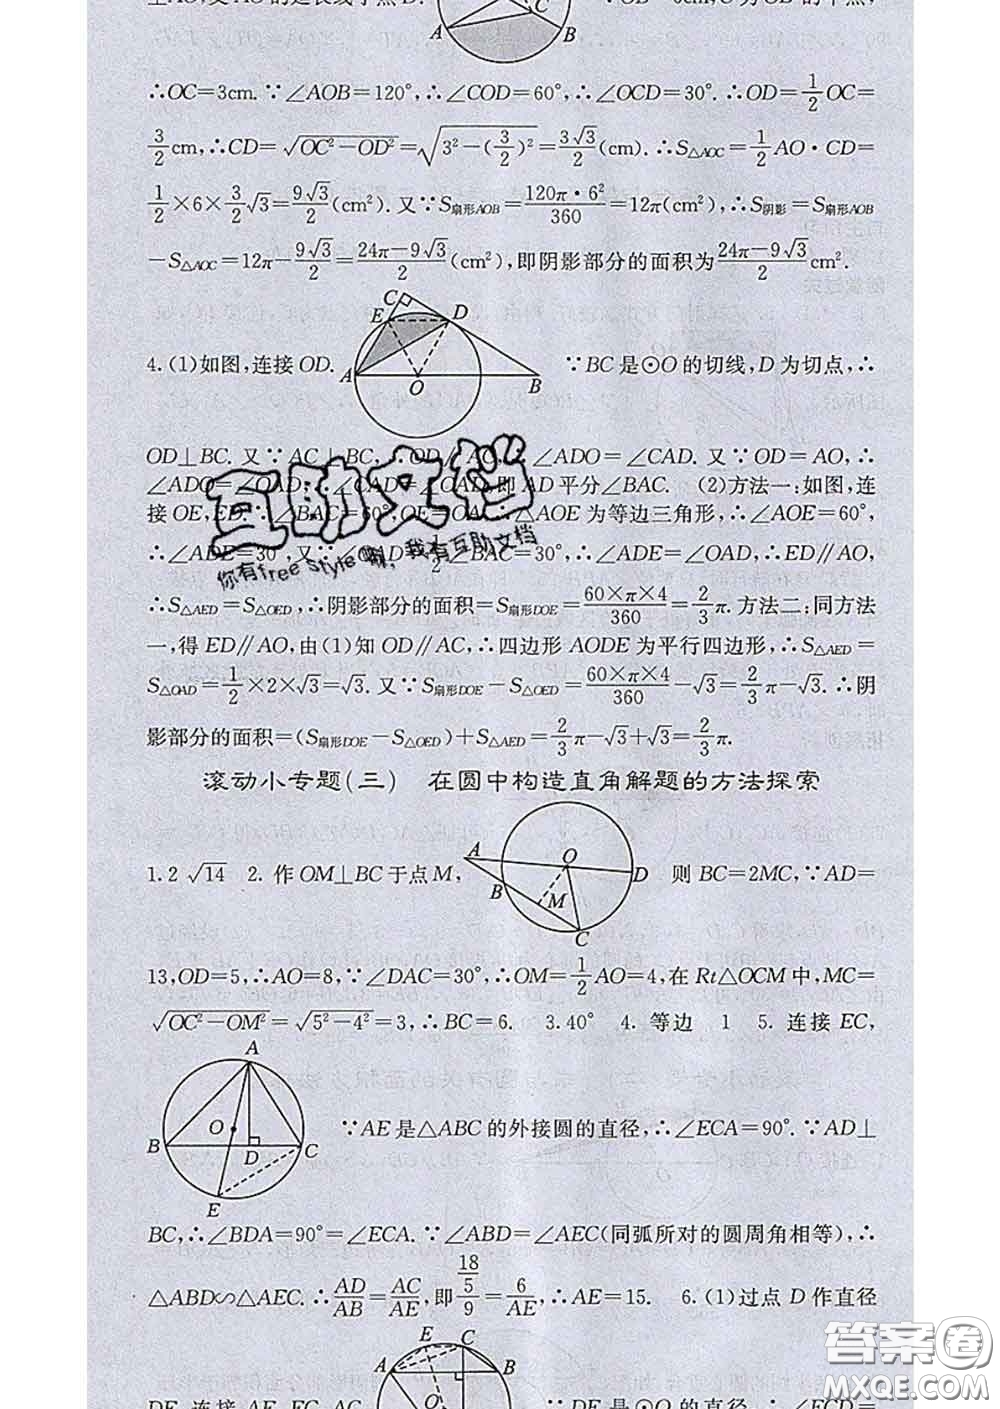 ∴OC=3cm. ∵∠AOB=120°,∴∠COD=60°,∴∠OCD=30°. ∴OD=1/2 OC=
3/2 cm,∴CD=√(OC²-OD²)=√(3²-(3/2)²)=3√3/2(cm). ∴S△AOC=1/2 AO·CD=
1/2×6×3/2√3=9√3/2(cm²). 又∵S扇形AOB=120π·6²/360=12π(cm²),∴S阴影=S扇形AOB
-S△AOC=12π-9√3/2=(24π-9√3)/2(cm²),即阴影部分的面积为(24π-9√3)/2 cm².
4.(1)如图,连接OD. ∵BC是⊙O的切线,D为切点,∴
OD⊥BC. 又∵AC⊥BC,∴OD∥AC,∴∠ADO=∠CAD. 又∵OD=AO,∴
∠ADO=∠OAD,∴∠CAD=∠OAD,即AD平分∠BAC. (2)方法一:如图,连
接OE,ED. ∵∠BAC=60°,OE=OA,∴△AOE为等边三角形,∴∠AOE=60°,
∴∠ADE=30°,又∵∠OAD=1/2∠BAC=30°,∴∠ADE=∠OAD,∴ED∥AO,
∴S△AED=S△OED,∴阴影部分的面积=S扇形DOE=60×π×4/360=2/3π. 方法二:同方法
一,得ED∥AO,由(1)知OD∥AC,∴四边形AODE为平行四边形,∴S△AED=
S△OAD=1/2×2×√3=√3. 又∵S扇形DOE-S△OED=60×π×4/360-√3=2/3π-√3. ∴阴
影部分的面积=(S扇形DOE-S△OED)+S△AED=2/3π-√3+√3=2/3π.
滚动小专题(三) 在圆中构造直角解题的方法探索
1.2√14 2. 作OM⊥BC于点M, 则BC=2MC,∵AD=
13,OD=5,∴AO=8,∵∠DAC=30°,∴OM=1/2 AO=4,在Rt△OCM中,MC=
√(OC²-OM²)=√(5²-4²)=3,∴BC=6. 3.40° 4. 等边 1 5. 连接EC,
∵AE是△ABC的外接圆的直径,∴∠ECA=90°. ∵AD⊥
BC,∴∠BDA=90°=∠ECA. ∵∠ABD=∠AEC(同弧所对的圆周角相等),∴
△ABD∽△AEC. ∴AD/AB=AC/AE,即(18/5)/9=6/AE,∴AE=15. 6.(1)过点D作直径
互助文档
你有free style嘛,我有互助文档
答案圈
MXQE.COM